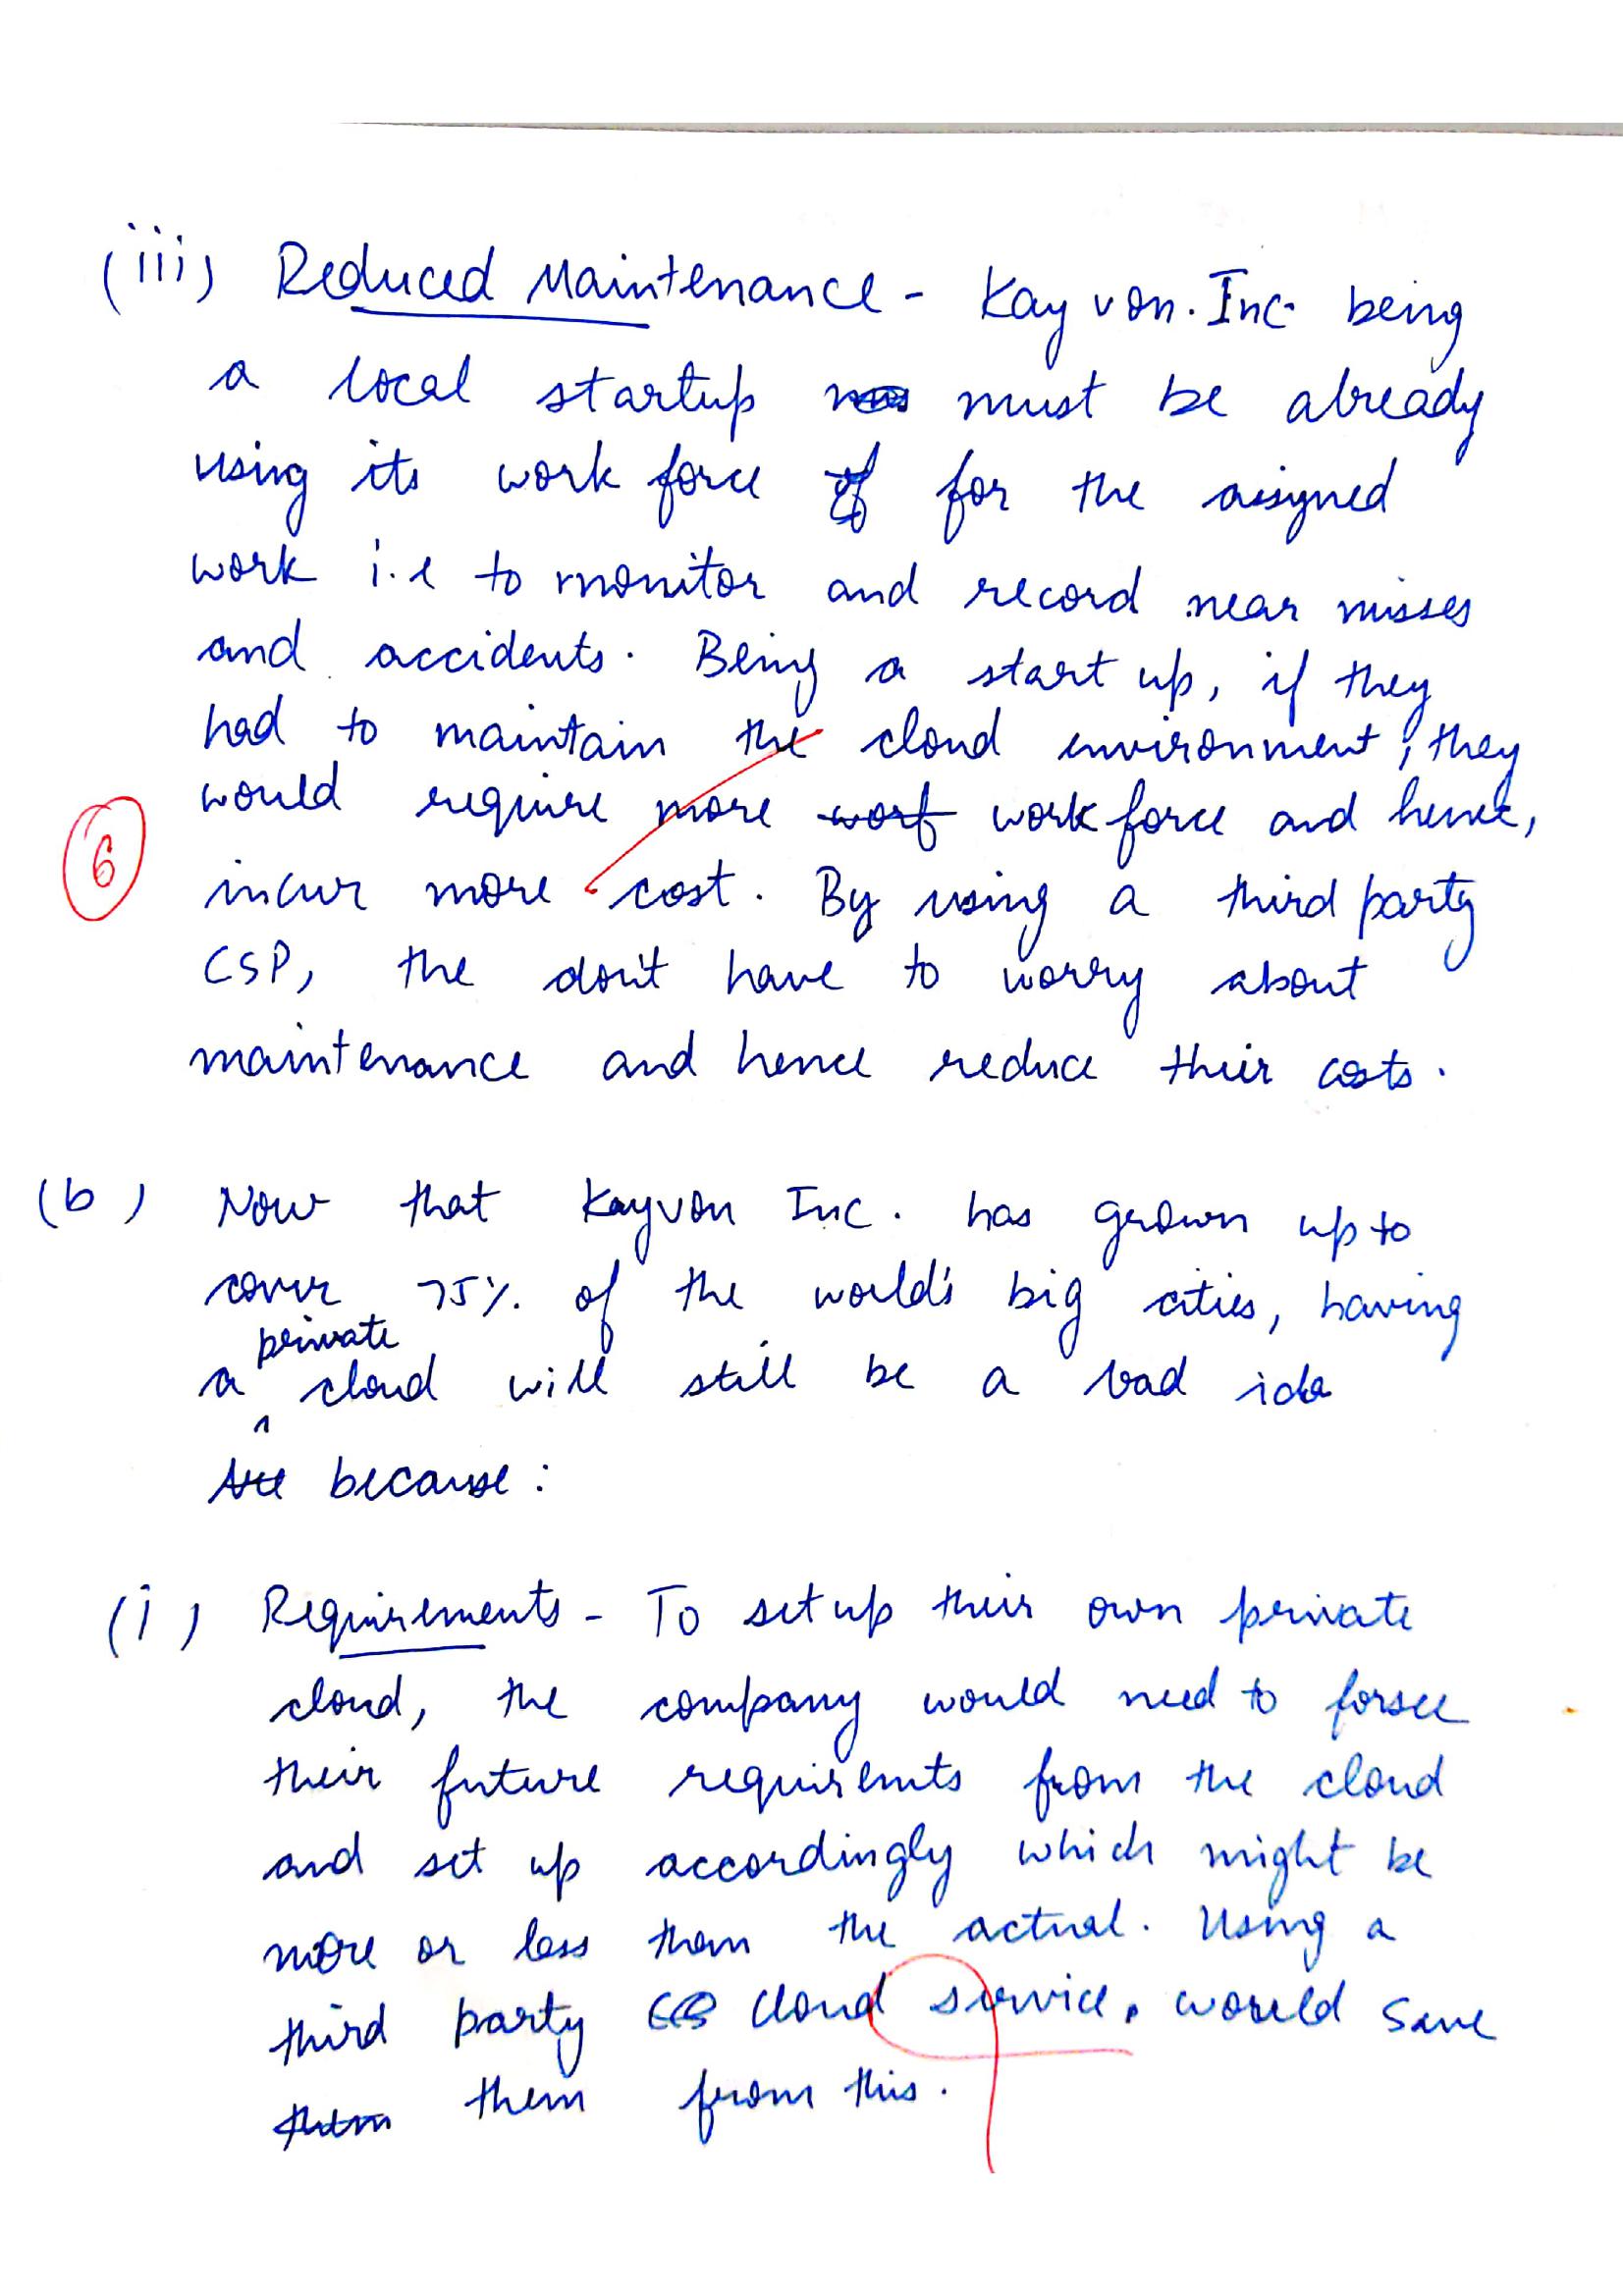 (iii) Reduced Maintenance - Kayvon. Inc. being
a local startup must be already
using its work force for the assigned
work i.e to monitor and record near misses
and accidents. Being a start up, if they
had to maintain the cloud environment, they
would require more worf work force and hence,
6
incur more cost. By using a third party
CSP, the don't have to worry about
maintenance and hence reduce their costs.
(b) Now that Kayvon Inc. has grown up to
cover 75% of the world's big cities, having
a private cloud will still be a bad idea
because:
(i) Requirements - To set up their own private
cloud, the company would need to forsee
their future requirements from the cloud
and set up accordingly which might be
more or less than the actual. Using a
third party cloud service, would save
them from this.